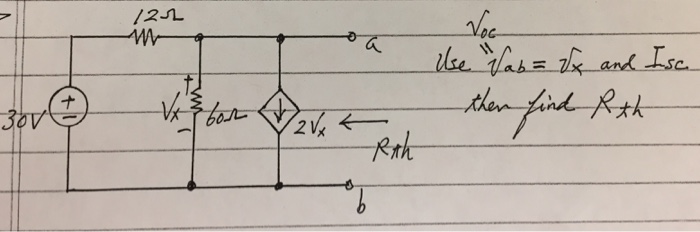 12Ω
a
30V
+
-
+
Vx
-
60Ω
2Vx
Rth
b
Voc
"
Use Vab = Vx and Isc
then find Rth